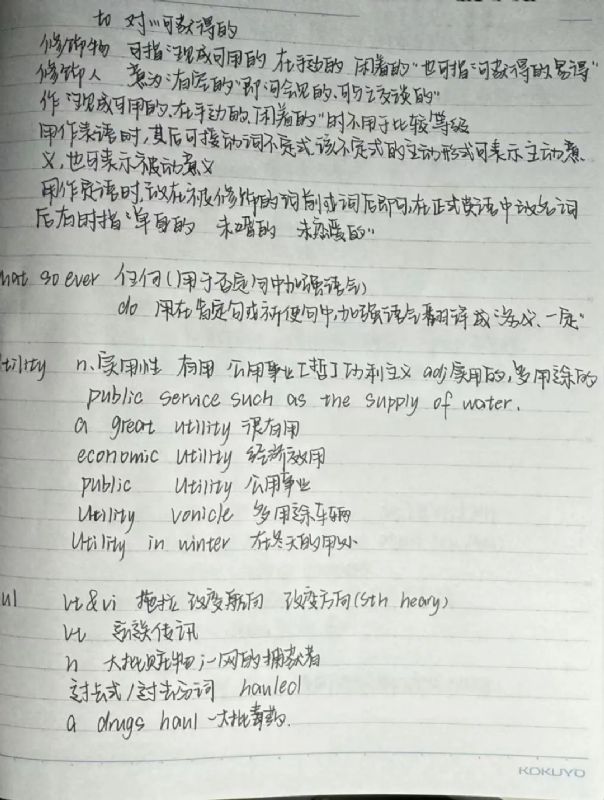 to 对…可获得的
修饰物 可指"现成可用的 在手边的 闲着的"也可指"可获得的 易得"
修饰人 意为"有空的"即"可会见的、可与之交谈的"
作"现成可用的、在手边的、闲着的"时不用于比较等级
用作表语时,其后可接动词不定式,该不定式的主动形式可表示主动意
义,也可表示被动意义
用作定语时,放在被修饰的词前或词后即可,在正式英语中放名词
后有时指"单身的 未婚的 未恋爱的"
hat so ever 任何(用于否定句中加强语气)
do 用在肯定句或祈使句中,加强语气翻译成"务必、一定"
tility n.实用性 有用 公用事业[哲]功利主义 adj实用的,多用途的
public service such as the supply of water.
a great utility 很有用
economic utility 经济效用
public utility 公用事业
utility vonicle 多用途车辆
utility in winter 在冬天的用处
ul vt&vi 拖拉 改变航向 改变方向(sth heary)
vt 传讯
n 大批赃物;一网的捕获者
过去式/过去分词 hauled
a drugs haul 一大批毒药.
KOKUYO